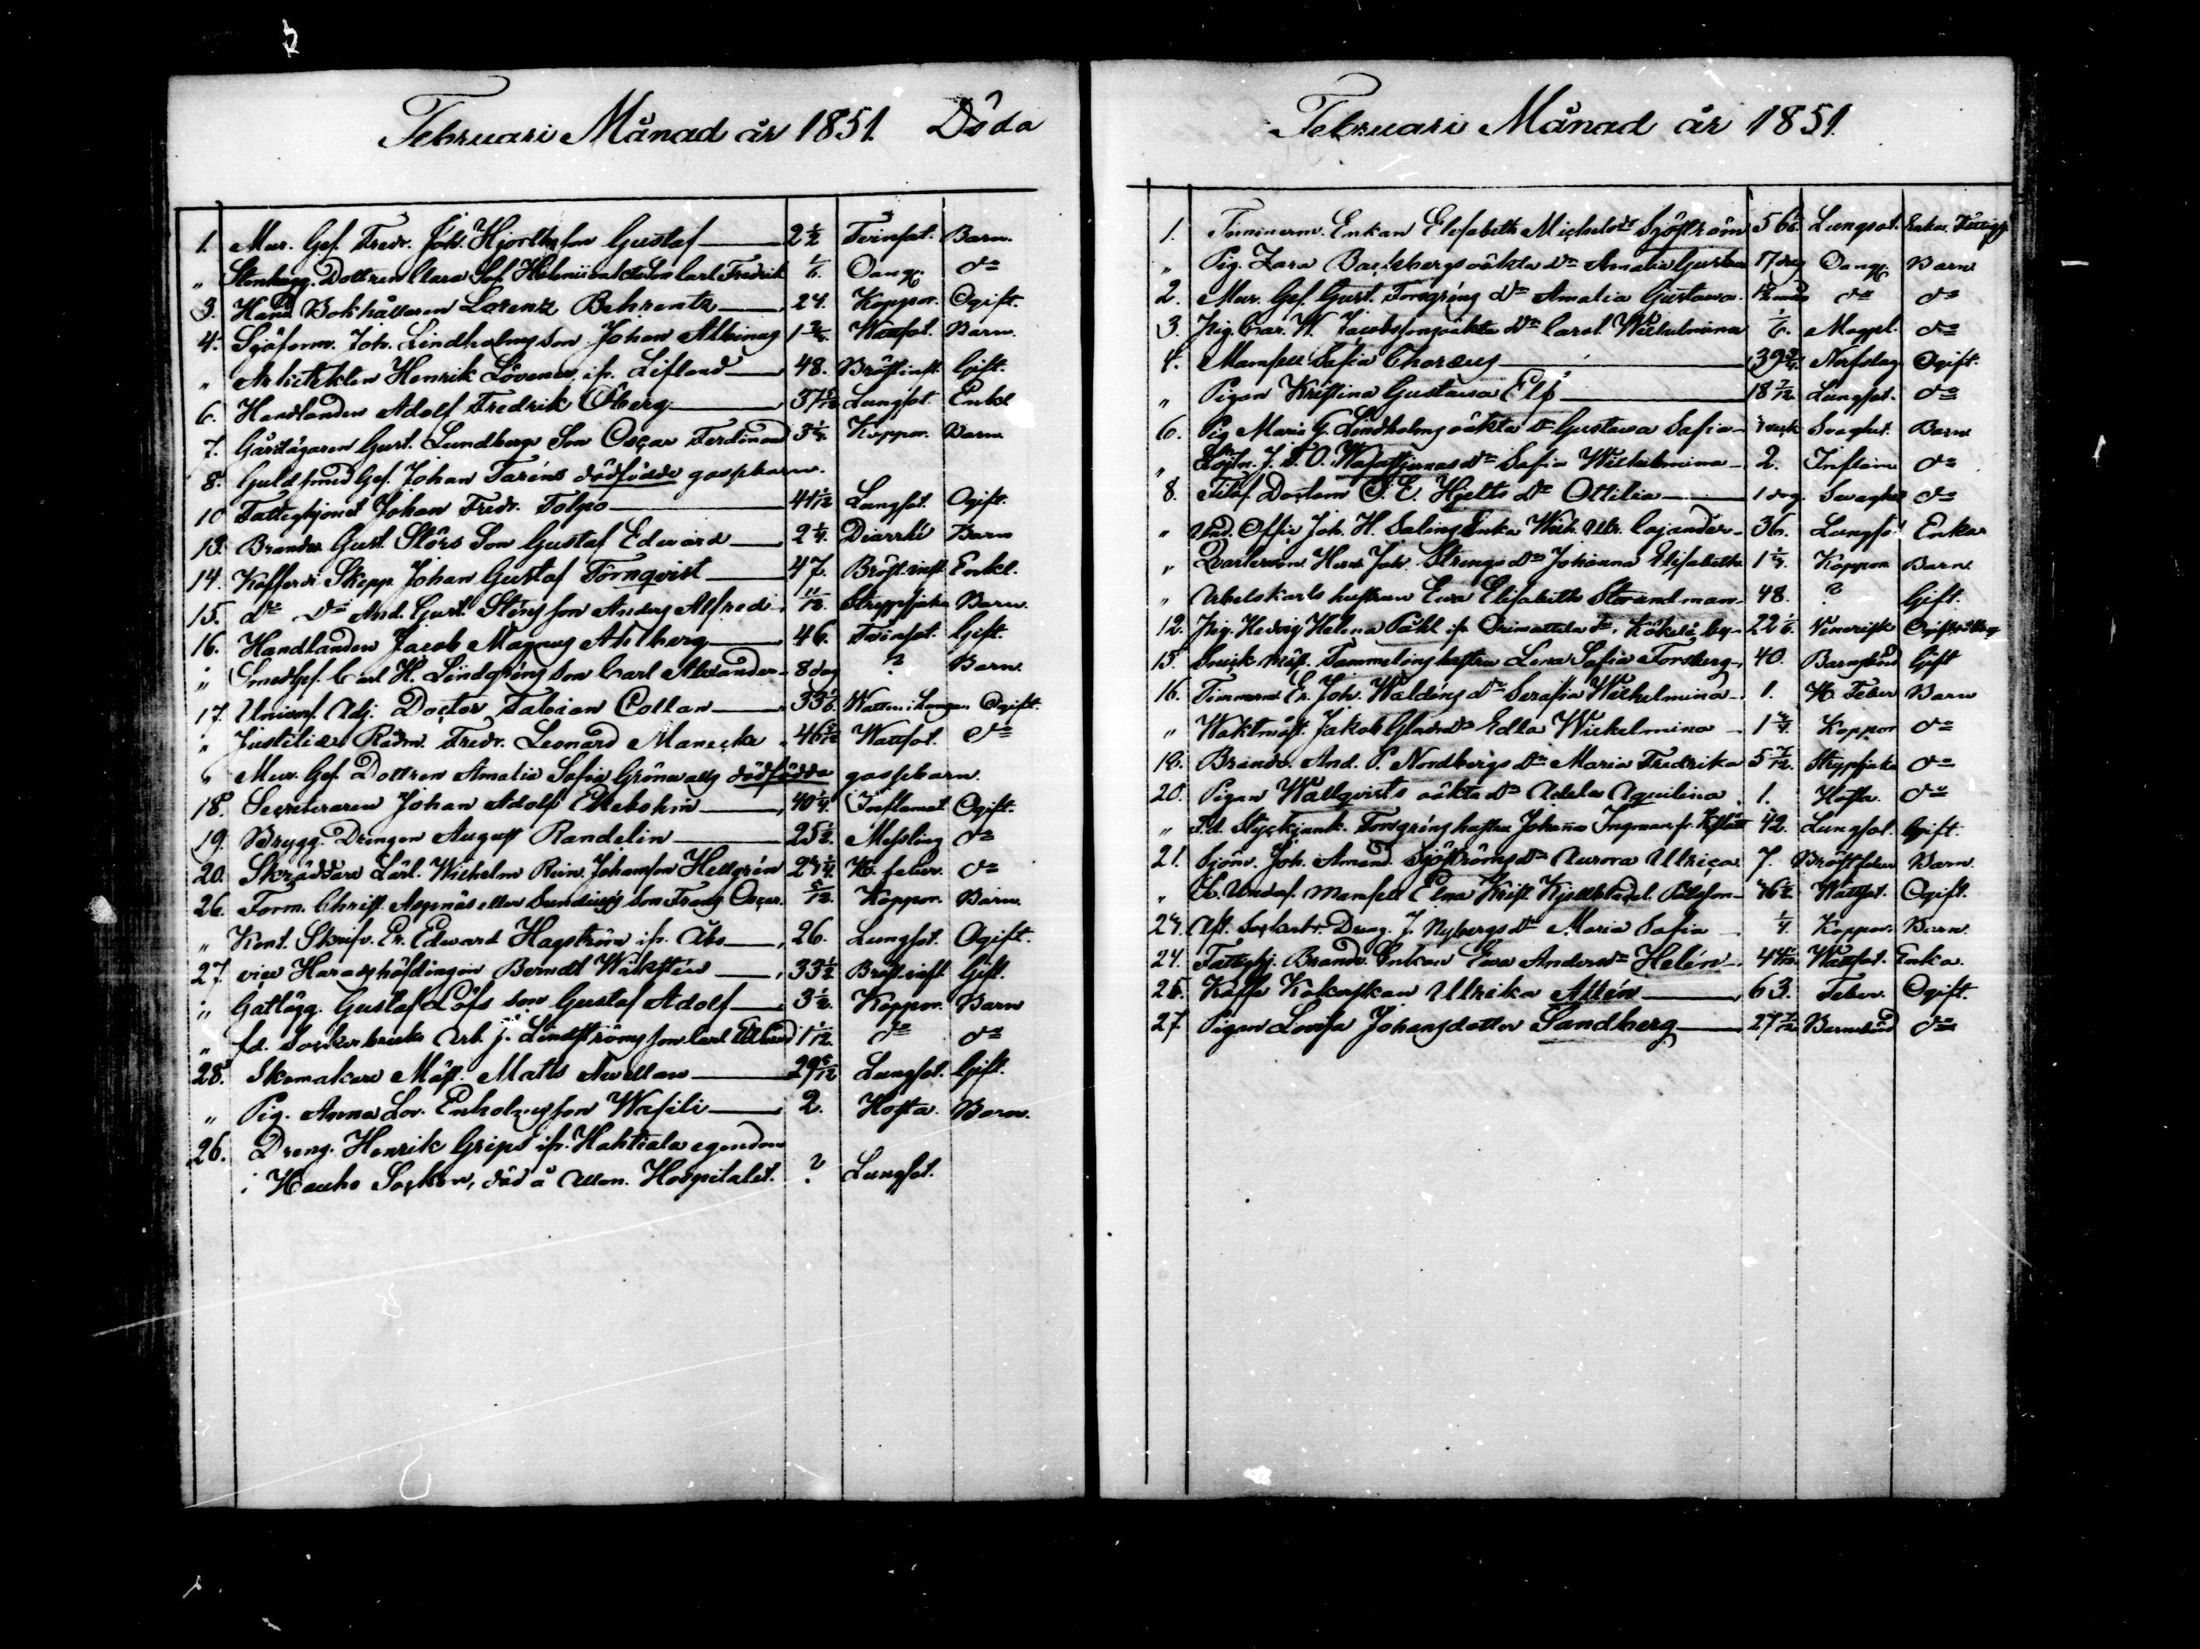 Februari Månad år 1851. Döda
1. Mur. Gef. Fredr. Joh. Hjorths son Gustaf 2 1/2 Tvinsot. Barn.
„ Stenhugg. Dottren Clara Sof. Helenii oäkta Son Carl Fredrik 1/6. Oangf. do
3. Hand. Bokhållaren Lorentz Behrents 24. Koppor. Ogift.
4. Sjöform. Joh. Lindholms son Johan Albinus 1 3/4. Wattsot. Barn.
„ Arkitekten Henrik Lövener ifr. Lifland 48. Bröstinfl. Gift.
6. Handlanden Adolf Fredrik Öberg 37 Lungsot. Enkl.
7. Gårdägaren Gust. Lundbergs Son Oscar Ferdinand 3 1/4. Koppor. Barn.
8. Guldsmed Gef. Johan Taréns dödfödde gossebarn.
10 Fattighjonet Johan Fredr. Folgo 41 1/12 Lungsot. Ogift.
13. Brandv. Gust. Störs Son Gustaf Edvard 2 1/4. Diarrhé Barn
14. Kofferdi Skepp. Johan Gustaf Törnqvist 47. Bröst infl. Enkl.
15. do do And. Gust. Sténs son Anders Alfred 11/12. Strypsjuka Barn.
16. Handlanden Jacob Magnus Ahlberg 46. Tvinsot. Gift.
„ Smed Gef. Carl H. Lindgréns son Carl Alexander 8 dag ? Barn.
17. Univers. Adj. Doctor Fabian Collan 33 1/6. Watten i lungan Ogift.
„ Justitiae Rådm. Fredr. Leonard Manecke 46 Wattsot. do
„ Mur. Gef. Dottren Amalia Sofia Grönwalls dödfödda gossebarn.
18. Secreteraren Johan Adolf Ekebohm 40 1/4. Inflamat. Ogift.
19. Brygg. Drengen August Randelin 25 1/2. Messling do
20. Skräddare Lärl. Wilhelm Rein. Johansson Hellgrén 27 1/4. H. feber. do
26. Form. Christ. Aspenäs eller Sundings Son Frans Oscar. 5/12. Koppor. Barn.
„ Kont. Skrifv. Er. Edward Hagström ifr. Åbo 26. Lungsot. Ogift.
27. vice Häradshöfdingen Berndt Wikstén 33 1/2 Bröst infl. Gift.
„ Gatlägg. Gustaf Löfs son Gustaf Adolf 3 1/2. Koppor. Barn
„ fd. Sockerbruks Arb. J. Lindströms son Carl Edvard 1 1/12. do do
28. Skomakare Mäst. Matts Avellan 29 Lungsot. Gift.
„ Pig. Anna Lov. Enholms son Wasili 2. Hosta. Barn.
26. Dreng. Henrik Grips ifr. Hahtiala egendom
i Hauho Socken, död å Allm. Hospitalet. ? Lungsot.
Februari Månad år 1851.
1. Timmerm. Enkan Elisabeth Michelsdr Sjöström 56 Lungsot. Enka. Fattigh
„ Pig. Zara Backbergs oäkta dr Amalia Gustava 17 dag Oangf. Barn
2. Mur. Gef. Gust. Forsgréns Dr Amalia Gustava. 1 1/2 mån do do
3. Pig. Car. W. Jacobssons oäkta Dr Carol. Wilhelmina 1/6. Magpl. do
4. Mamsell Sofia Choræus 39 3/4. Nerfslag Ogift.
„ Pigan Kristina Gustava Elf 18 7/12 Lungsot. do
6. Pig Maria G. Lindholms oäkta Dr Gustava Sofia Svaghet. Barn
„ J. F. O. Wasastjernas dr Sofia Wilhelmina 2. Inflam. do
8. Filos. Doctorn O. E. Hjelts Dr Ottilia 1 dag. Svaghet do
„ Und. Offic. Joh. H. Salins Enka Wilh. Ulr. Cajander 36. Lungsot Enka
„ Qvarterm. Herm. Joh. Strengs Dr Johanna Elisabeth 1 1/4. Koppor Barn.
„ Arbetskarls hustrun Eva Elisabeth Strandman 48. ? Gift.
12. Pig. Hedvig Helena Påhl ifr. Orimattila Sn, Kökelä by 22 1/6. Venerisk Ogift
15. Snick. Mäst. Tammelins hustru Lena Sofia Forsberg 40. Barnsbörd Gift
16. Timmerm. Er. Joh. Waldéns dr Serafia Wilhelmina 1. H. Feber Barn
„ Waktmäst. Jakob Glads dr Edla Wilhelmina 1 3/4 Koppor do
18. Brandv. And. P. Nordbergs Dr Maria Fredrika 5 7/12. Strypsjuka do
20. Pigan Wallqvists oäkta dr Adela Aquilina 1. Hosta. do
„ Fd. Styckjunk. Forsgréns hustru Johanna Ingman fr. 42. Lungsot. Gift.
21. Sjöm. Joh. Amand. Sjöströms dr Aurora Ulrica 7. Bröstfeber Barn.
„ Mamsell Elna Krist. Kjellstadt. 46 1/2 Wattsot. Ogift.
24. Aft. Sockerbr. Dreng. J. Nybergs dr Maria Sofia 1/4. Koppor. Barn.
24. Fattighj. Brandv. Enkan Eva Andersdr Helén 44 Wattsot. Enka.
26. Kaffe Kokerskan Ulrika Allén 63. Feber. Ogift.
27. Pigan Lovisa Johansdotter Sandberg 27 7/12 Barnsbörd do